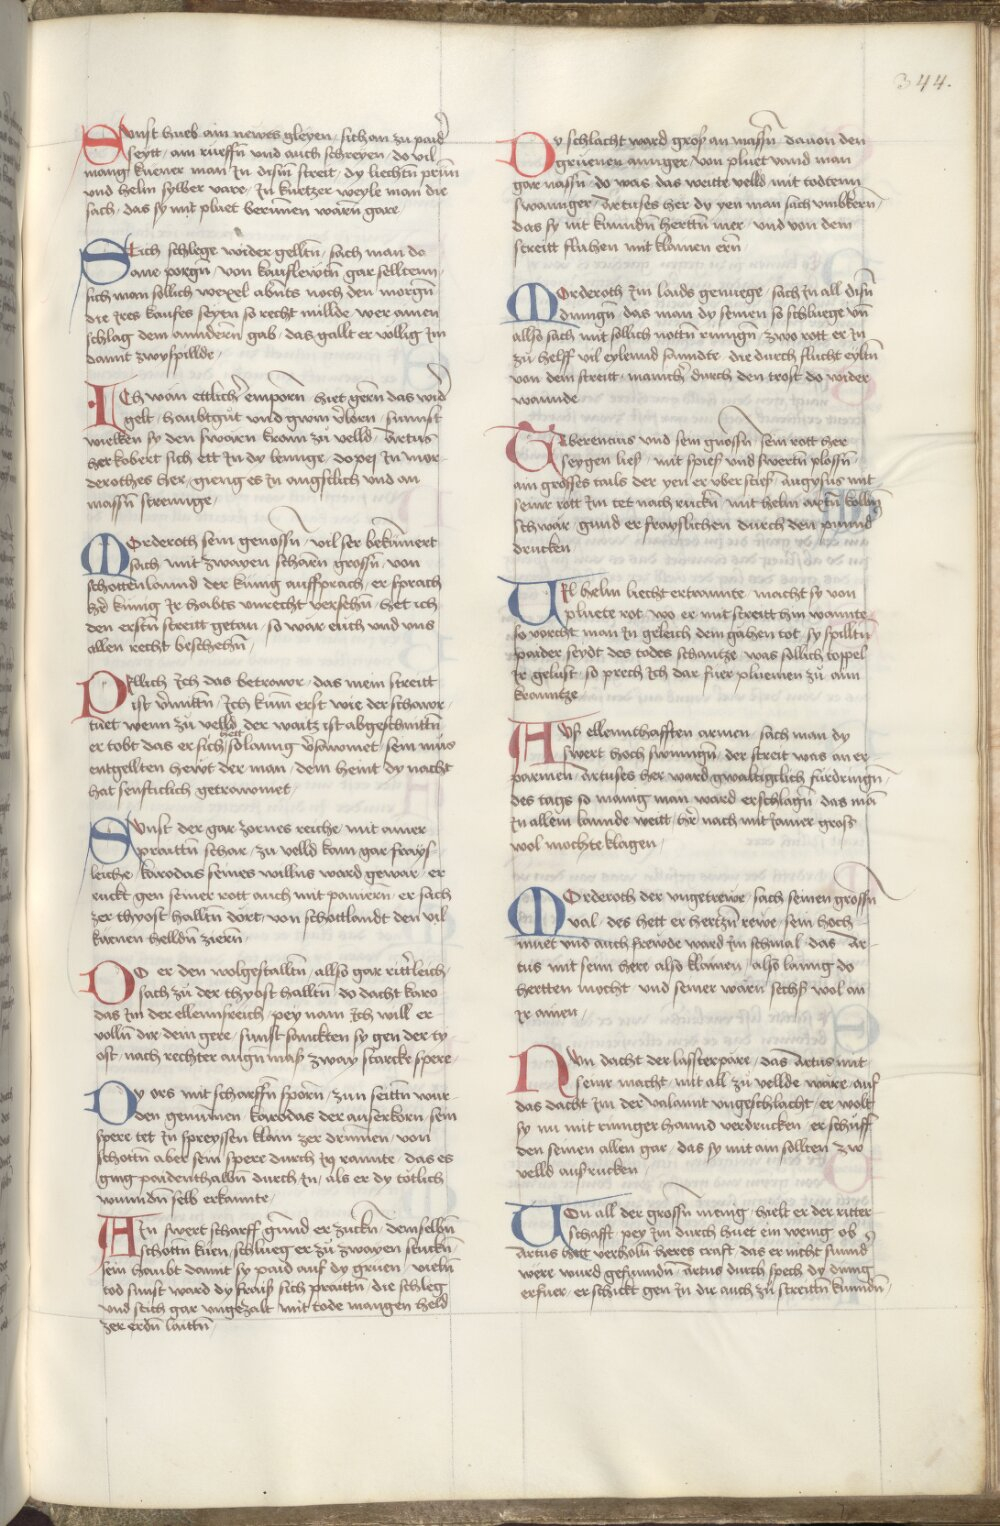 344.
Sunst hueb ain newes gleyen / sich an zu paid͛
seytt / ain rueffñ vnd auch schreyen / do vil
manig kuener man In dism̄ streit / dy liechtñ prün̄
vnd helm sylber vare / In kurtzer weyle man die
sach / das sy mit pluet berunnen warñ gare /
Stich schlege wider gelltñ / sach man do
ane porgñ / von kauflewtñ gar selltenn /
sich man sollich wexel abnts noch den morgñ
die Ires kaufes seyen so recht millde / wer ainen
schlag dem anndernn gab / das gallt er völlig Im
damit zwyspillde /
ICh wän ettlich͛ emporñ / hiet gern das wid͛
gelt / haubtgůt vnd gwin v͛lorn / sunnst
wielken sy den swärn kram zů velld / Artus
her kobert sich ett In dy lennge / do pey In mor
derothes her / gieng es In angstlich vnd an
massñ strennge /
MOrderoth sein genossñ / vil ser bekümert
sach / mit zwayen scharñ grossñ / von
schottenlannd der künig auffsprach / er sprach
her künig Ir habts vnrecht versehñ / het ich
den erstñ streitt getan / so wär euch vnd vns
allen recht beschehñ /
PIllich Ich das betrawr / das mein streitt
ist v͛mittñ / Ich kum̄ erst wie der schawr /
tuet wenn zů velld / der waitz ist abgeschnittñ
er tobt das er sich hett so lanng v͛sawmet / sein mus
entgellten hewt der man / dem heint dy nacht
hat senfticlich getrawmet /
SUnst der gar zornes reiche / mit ainer
praittñ schar / zu velld kam gar frays
leiche / karodas seines willns ward gewar / er
ruckt gen seiner rott auch mit panirñ / er sach
zer thyost halltñ dort / von schottlandt den vil
küenen helldñ ziern /
DO er den wolgestalltñ / allso gar ritt͛leich /
sach zů der thyost halltñ / do dacht karo
das Im der ellennsreich / pey nam Ich will er
vollñ dir dein gere / sunst sanckten sy gen der ty
ost / nach rechter augñ maß zway starcke spere
DY ors mit scharffñ sporñ / zun seittñ wur
den genummen / karodas der auserkorn / sein
spere tet In spreyssen klain zer drumen / von
schottñ aber sein spere durch In rannte / das es
ging paidenthalbñ durch In / als er dy tötlich
wunndñ selb erkannte /
AIn swert scharff / gund er zuckñ / demselbñ
schottñ küen / schlueg er zů zwayen stuckñ
sein haubt damit sy paid auf dy gruen / vielñ
tod sunst ward dy frais sich praittñ / die schleg
vnd stich gar vngezalt / mit tode mangen held
zer erdñ laittñ /
DY schlacht ward groß an massñ / dauon den
gruenen annger / von pluet vand man
gar nassñ / do was das weitte velld / mit todtenn
swannger / Artuses her dy yen man sach vmbkern /
das sy nit kunndñ herttñ mer / vnd von dem
streitt fluhen mit klainen erñ /
MOrderoth Im laids genuege / sach In all disñ
dinngñ / das man dy seinen so schluege vñ
allso sach mit sollich nöttñ ringñ / zwo rott er In
zů helff vil eylennd sanndte / die durch flucht eyltñ
von dem streitt / mannich͛ durch den trost do wider
wannde
Uberentius vnd sein gnossñ / sein rott her
seygen lies / mit spies vnd swertñ plossñ
ain grosses tails der yen er vberstieß / Augustus mit
seiner rott Im tet nach ruckñ / mit helm axtñ kolbñ
schwär / gund er frayslichen durch den punnd
drucken
UIl helm liecht ertrannte / macht sy von
pluete rot / wo er mit streitt hin wannte
so vorcht man In geleich dem gähen tot / sy spilltñ
paider seydt des todes schantze / was sollich toppel
Ir gelust / so prech Ich dar fuer pluemen zů ain
kranntze
AUß ellennthafften armen / sach man dy
swert hoch swinngñ / der streit was an er
parmen / Artuses her ward gwalltigklich fürdringñ /
des tags so manig man ward erschlagñ / das mā
In allem lannde weitt / Ir nach mit Iamer gross
wol mochte klagen /
MOrderoth der vngetrewe / sach seinen grossñ
val / des hett er hertzñ rewe / sein hoch
muet vnd auch frewde ward Im schmal / das Ar
tus mit seim here also klainen / also lanng do
hertten mocht / vnd seiner warñ sechs wol an
Ir ainen /
NUn dacht der lasterpäre / das Artus mit
seinr macht / mit all zů vellde wäre / auf
das dacht Im der valannt vngeschlacht / er wolt
sy nu mit ringer hannd verdrucken / er schuff
den seinen allen gar / das sy mit ain sollten zw
velld aus rucken /
UOn all der grossñ menig / hielt er der ritter
schafft / pey Im durch huet ein wenig / ob
Artus hett verholñ heres craft / das er nicht sunnd
were wurd gefunndñ / Artus durch spech dy ding
erfuer / er schickt gen In die auch zů streittñ kunndñ /